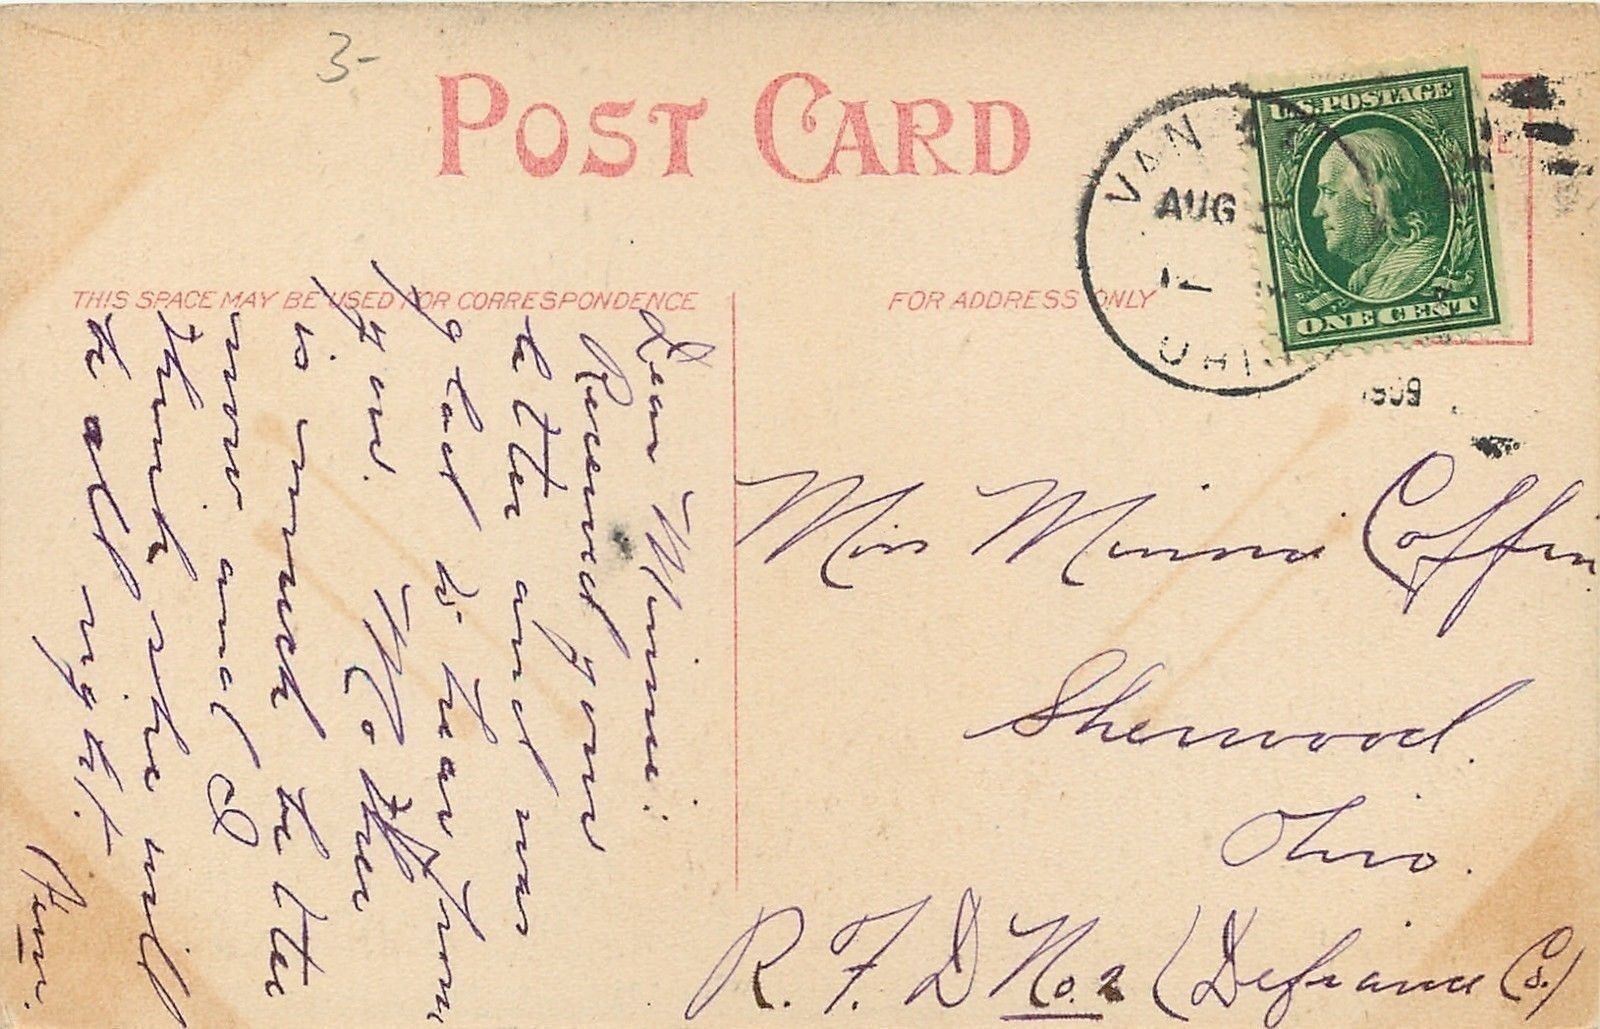 3-
POST CARD
U.S. POSTAGE
ONE CENT
VAN
AUG
OHIO
1909
THIS SPACE MAY BE USED FOR CORRESPONDENCE
FOR ADDRESS ONLY
Dear Minnie:
Received your
letter and was
glad to hear from
you. Mother
is much better
now and I
think she will
be all right.
Miss Minnie Coffin
Sherwood.
Ohio.
R. F. D No. 2 (Defiance Co.)